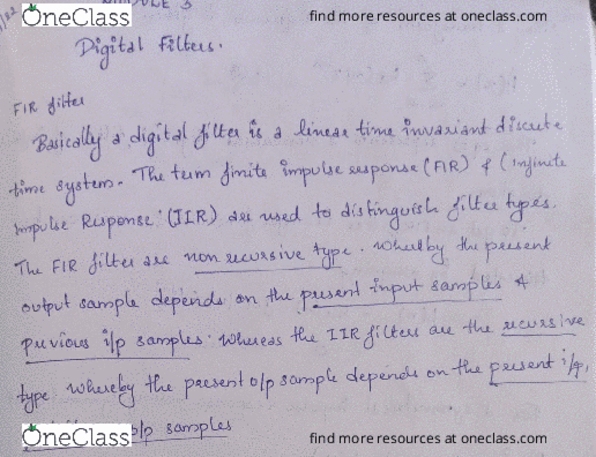 OneClass
find more resources at oneclass.com
Digital Filters.
FIR filter
Basically a digital filter is a linear time invariant discrete
time system. The term finite impulse response (FIR) & (Infinite
Impulse Response (IIR) are used to distinguish filter types.
The FIR filter are non recursive type. whereby the present
output sample depends on the present input samples &
previous i/p samples. whereas the IIR filters are the recursive
type whereby the present o/p sample depends on the present i/p,
OneClass o/p samples
find more resources at oneclass.com